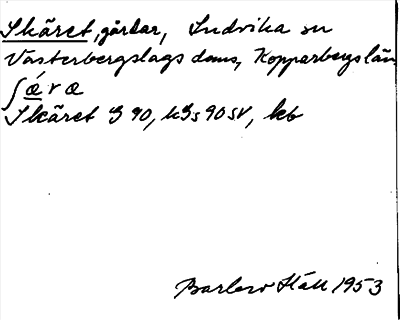 Skäret, gårdar, Ludvika sn
Västerbergslags doms, Kopparbergs län
ʃǽra
Skäret G 90, kGs 90 SV, kb
Barbro Ståhl 1953